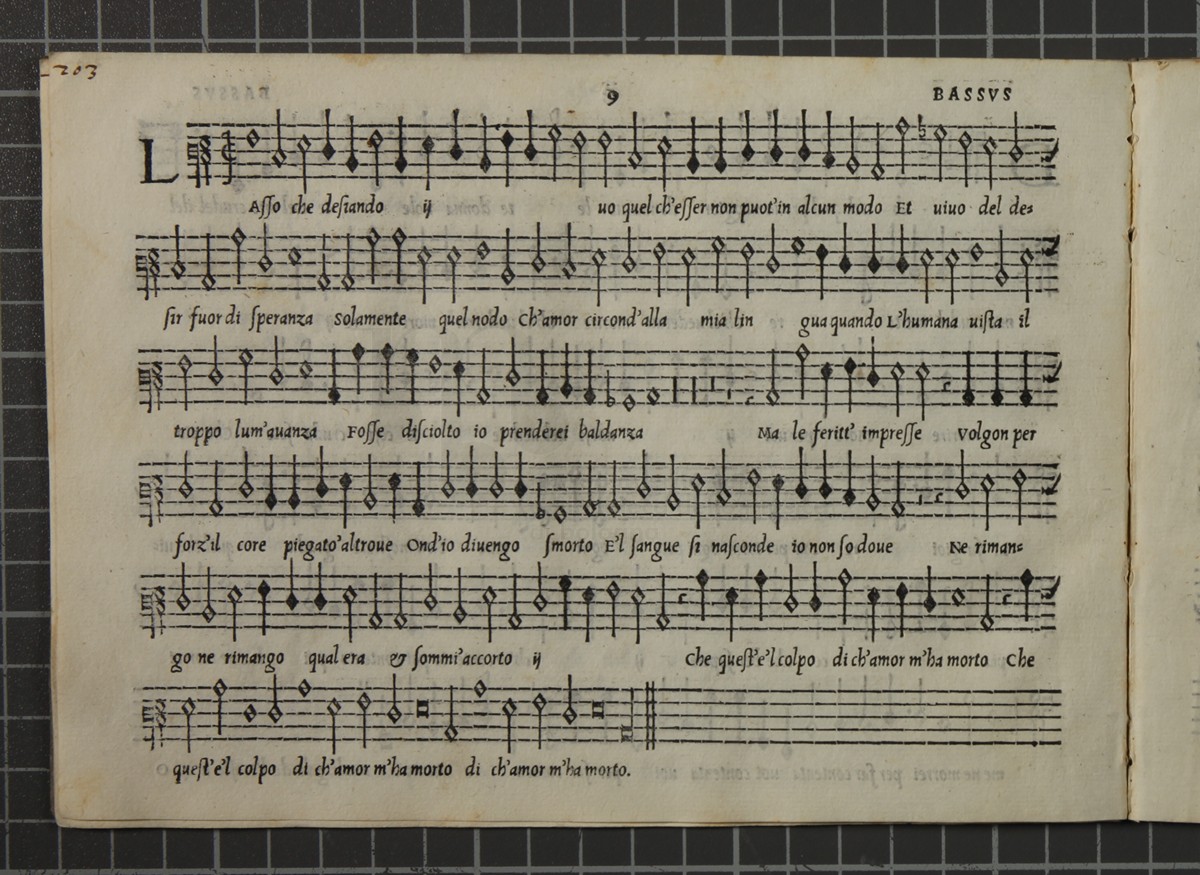 203
9 BASSVS
L
Asso che desiando ij uo quel ch'esser non puot'in alcun modo Et uiuo del de=
sir fuor di speranza solamente quel nodo Ch'amor circond'alla mia lin gua quando L'humana uista il
troppo lum'auanza Fosse disciolto io prenderei baldanza Ma le feritt' impresse Volgon per
forz'il core piegato'altroue Ond'io diuengo smorto E'l sangue si nasconde io non so doue Ne riman=
go ne rimango qual era & sommi'accorto ij Che quest'e'l colpo di ch'amor m'ha morto Che
quest'e'l colpo di ch'amor m'ha morto di ch'amor m'ha morto.